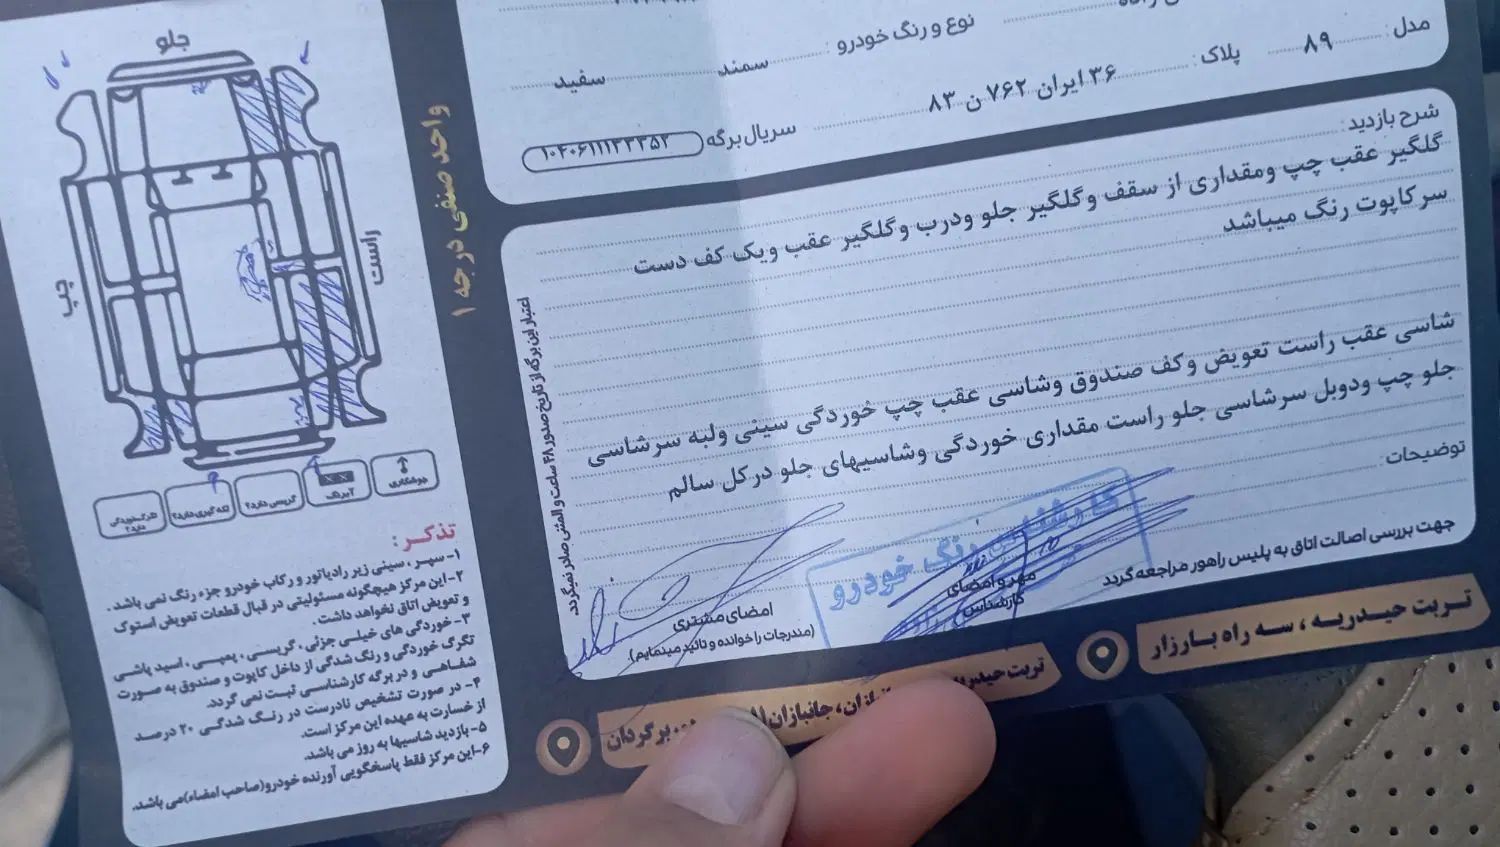 مدل: ۸۹
نوع و رنگ خودرو: سمند سفید
پلاک: ۳۶ ایران ۷۶۲ ن ۸۳
سریال برگه
شرح بازدید:
گلگیر عقب چپ ومقداری از سقف وگلگیر جلو ودرب وگلگیر عقب ویک کف دست
سرکاپوت رنگ میباشد
شاسی عقب راست تعویض وکف صندوق وشاسی عقب چپ خوردگی سینی ولبه سرشاسی
جلو چپ ودوبل سرشاسی جلو راست مقداری خوردگی وشاسیهای جلو درکل سالم
توضیحات:
جهت بررسی اصالت اتاق به پلیس راهور مراجعه گردد
کارشناس رنگ خودرو
مهر و امضای
کارشناس
امضای مشتری
(مندرجات را خوانده و تائید مینمایم).
اعتبار این برگه از تاریخ صدور ۴۸ ساعت و المثنی صادر نمیگردد.
تربت حیدریه ، سه راه بارزار
واحد صنفی درجه ۱
جلو
راست
چپ
جوشکاری
آبرنگ
گریسی دارد؟
لکه گیری دارد؟
تذکر:
۱- سپر ، سینی زیر رادیاتور و رکاب خودرو جزء رنگ نمی باشد .
۲- این مرکز هیچگونه مسئولیتی در قبال قطعات تعویض استوک
و تعویض اتاق نخواهد داشت .
۳- خوردگی های خیلی جزئی ، گریسی ، پمپی ، اسید پاشی
تگرگ خوردگی و رنگ شدگی از داخل کاپوت و صندوق به صورت
شفاهی و در برگه کارشناسی ثبت نمی گردد.
۴- در صورت تشخیص نادرست در رنگ شدگی ۲۰ درصد
از خسارت به عهده این مرکز است.
۵- بازدید شاسیها به روز می باشد.
۶- این مرکز فقط پاسخگویی آورنده خودرو(صاحب امضاء)می باشد.